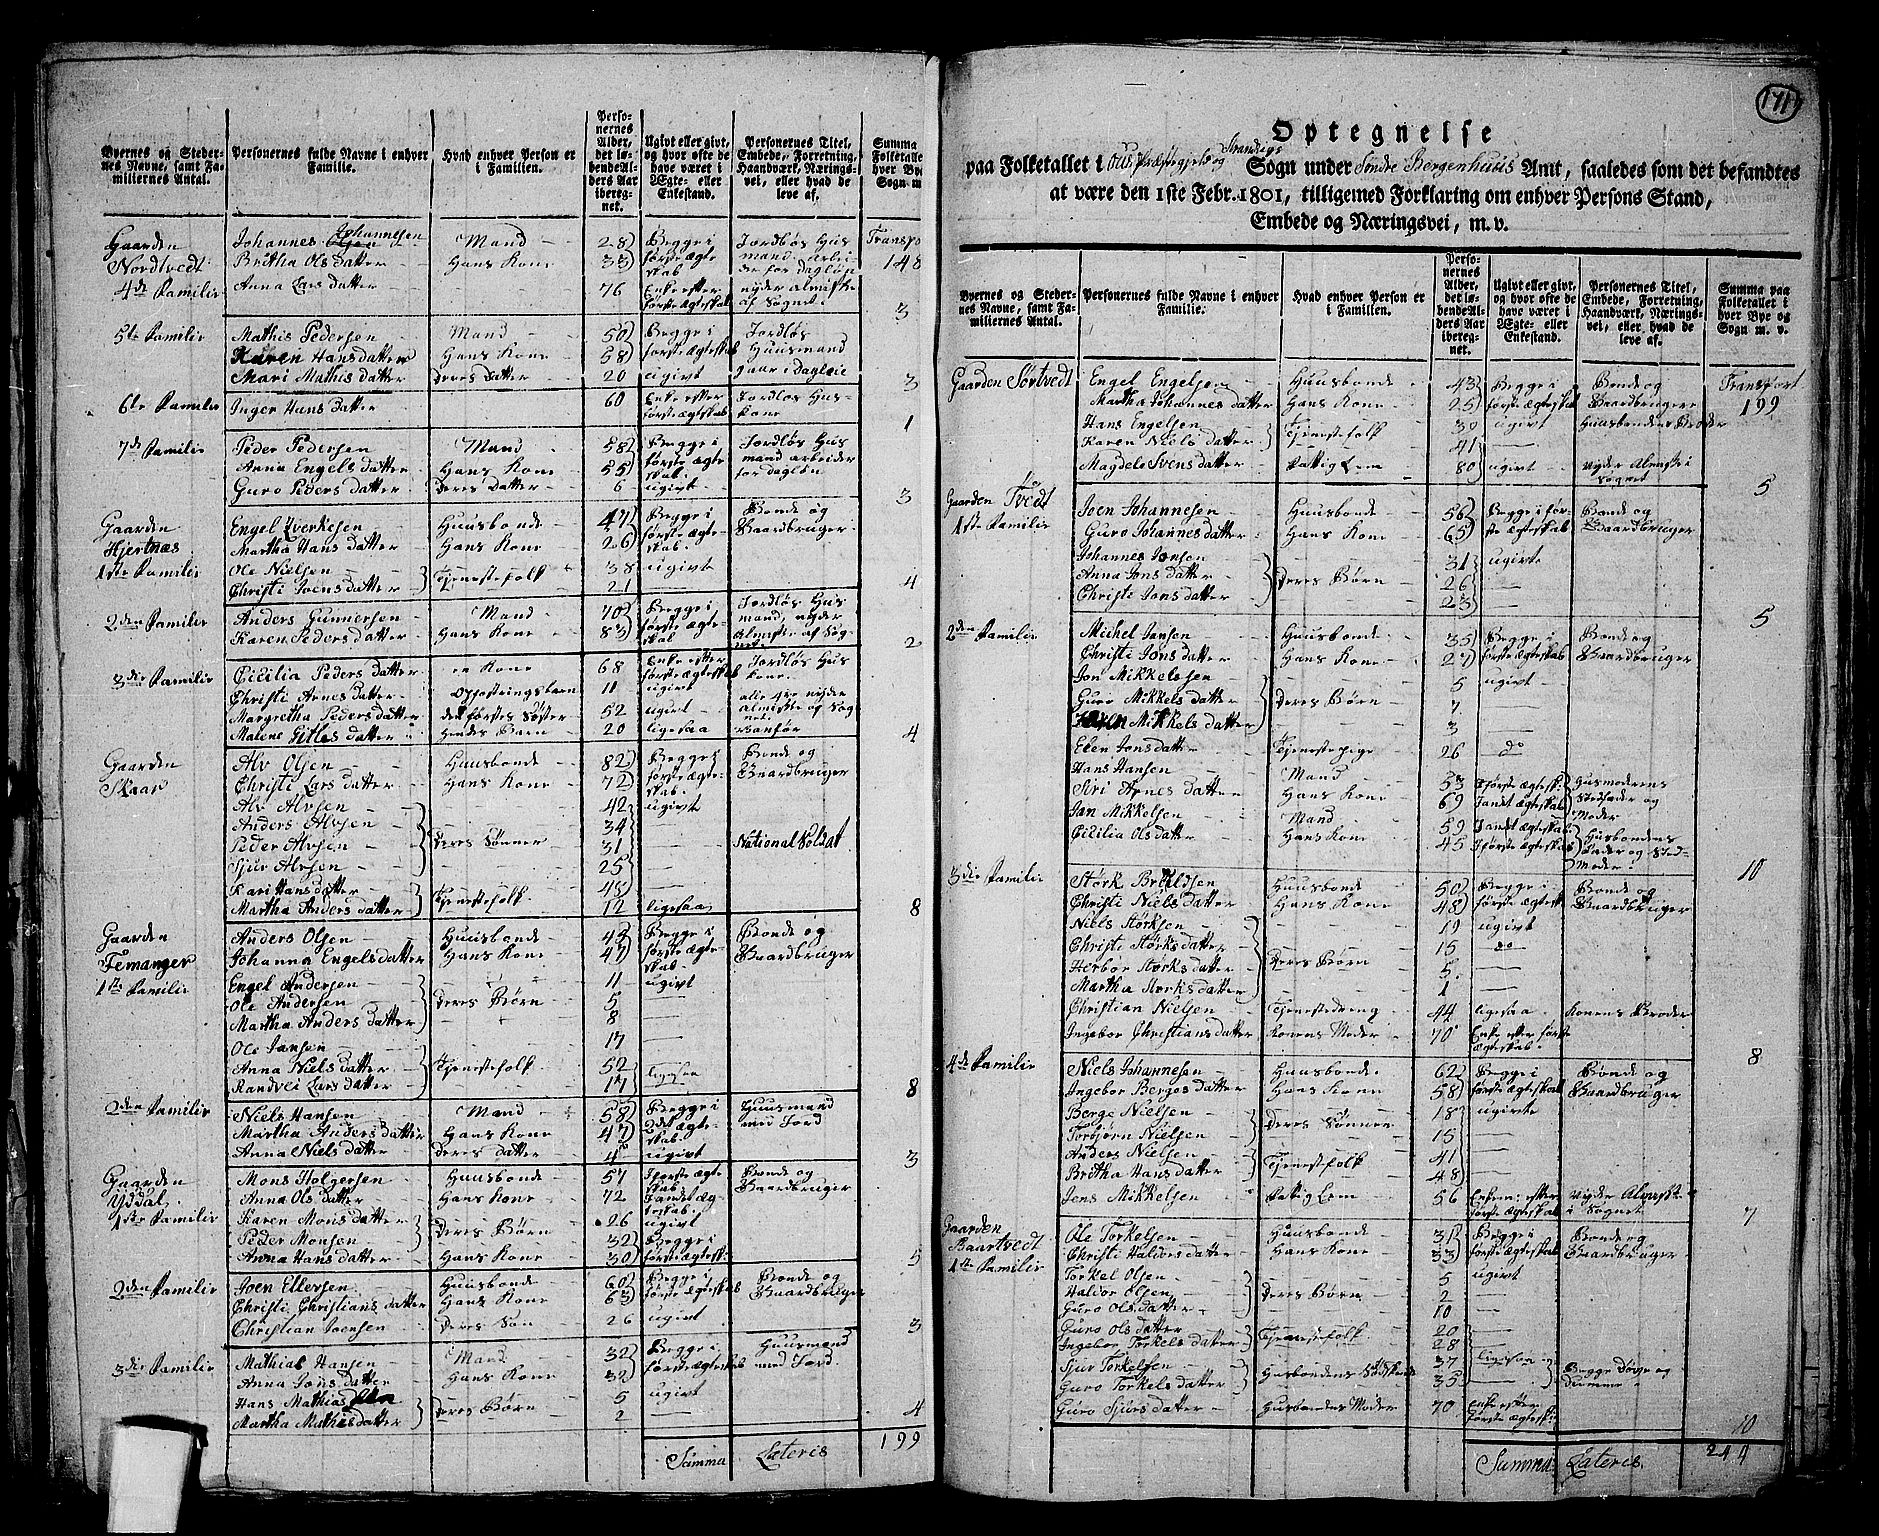 Byernes og Steder-
nes Navne, samt Fa-
miliernes Antal.
Personernes fulde Navne i enhver
Familie.
Hvad enhver Person er
i Familien.
Perso-
nernes
Alder,
det lø-
bende Al-
ders Aar
iberegnet.
Ugivt eller givt,
og hvor ofte de
have været i
Ægte- eller
Enkestand.
Personernes Titel,
Embede, Forretning,
Haandværk, Nærings-
vei, eller hvad de
leve af.
Summa
Folketallet
hver Bye
Sogn m.
Gaarden Johannes Johannesen Mand 28 Begge i Jordløs Hus
Nordtvedt Britha Ols datter Hans Kone 33 første ægte skab mand arbei- 148
4de Familie Anna Lars datter 76 Enke efter første ægteskab nyder almisse af Sognet 3
5te Familie Mathis Pedersen Mand 50 Begge i Jordløs
Karen Hansdatter Hans Kone 58 første ægteskab Huusmand
Mari Mathis datter Deres Datter 20 ugivt gaar i Dagleie 3
6te Familie Inger Hans datter 60 Enke efter første ægteskab Jordløs Hus-kone 1
7de Familie Peder Pedersen Mand 58 Begge i Jordløs Hus
Anna Engels datter Hans Kone 55 første ægte skab mand arbeider
Guro Peders datter Deres Datter 6 ugivt for Dagløn 3
Gaarden Engel Iverksen Huusbonde 47 Begge i Bonde og
Hjertnæs Martha Hans datter Hans Kone 26 første ægte skab Gaardbruger
1ste Familie Ole Nielsen Tjenestefolk 38 ugivt
Christi Joensdatter 21 4
2den Familie Anders Gunnersen Mand 70 Begge i Jordløs Hus
Karen Peders datter Hans Kone 83 første ægte skab mand, nyder Almisse af Sognet 2
3die Familie Cicilia Peders datter en Kone 68 Enke efter første ægteskab Jordløs Hus kone
Christi Arnes datter Opfostringsbarn 11 ugivt alle 4re nyder
Margretha Peders datter den førstes Søster 52 ugivt almisse af Sognet
Malene Gitles datter Hendes Barn 20 ligesaa Vanfør 4
Gaarden Alv Olsen Huusbonde 82 Begge i Bonde og
Skaar Christi Lars datter Hans Kone 72 første ægte-skab Gaardbruger
Alv Alvsen 42 ugivt
Anders Alvsen 34
Peder Alvsen Deres Sønner 31 National Soldat
Sjur Alvsen 25
Kari Hans datter Tjenestefolk 48
Martha Anders datter 12 ligesaa 8
Gaarden Anders Olsen Huusbonde 42 Begge i Bonde og
Femanger Johanna Engels datter Hans Kone 47 første ægte skab Gaardbruger
1ste Familie Engel Andersen 11 ugivt
Ole Andersen Deres Børn 5
Martha Anders datter 8
Ole Jansen 17
Anna Niels datter Tjenestefolk 52 ligesaa
Randvei Lars datter 17 8
2den Familie Niels Hansen Mand 58 Begge i Huusmand
Martha Anders datter Hans Kone 47 2det ægte-skab med Jord
Anna Niels datter Deres datter 4 ugivt 3
Gaarden Mons Holgersen Huusbonde 57 første ægte skab Bonde og
Yddal Anna Ols datter Hans Kone 72 Gaardbruger
1ste Familie Karen Mons datter Deres Børn 26 ugivt
Peder Monsen 32 Begge i
Anna Hans datter Hans Kone 30 første ægtesk: 5
2den Familie Joen Ellersen Huusbonde 60 Begge i Bonde og
Christi Christians datter Hans Kone 63 første ægteskab Gaardbruger
Christian Joensen Deres Søn 26 ugivt 3
3die Familie Mathias Hansen Mand 32 Begge i Huusmand
Anna Jons datter Hans Kone 32 første ægteskab med Jord
Hans Mathiasen Deres Børn 5 ugivt
Martha Mathis datter 2 4
Summa Lateris 199
171
Optegnelse
paa Folketallet i Ous Præstegjeld og Strandvigs Sogn under Søndre Bergenhuus Amt, saaledes som det befandtes
at være den 1ste Febr. 1801, tilligemed Forklaring om enhver Persons Stand,
Embede og Næringsvei, m. v.
Byernes og Steder-
nes Navne, samt Fa-
miliernes Antal.
Personernes fulde Navne i enhver
Familie.
Hvad enhver Person er
i Familien.
Perso-
nernes
Alder,
det lø-
bende Al-
ders Aar
iberegnet.
Ugivt eller givt,
og hvor ofte de
have været i
Ægte- eller
Enkestand.
Personernes Titel,
Embede, Forretning,
Haandværk, Nærings-
vei, eller hvad de
leve af.
Summa paa
Folketallet i
hver Bye og
Sogn m. v.
Gaarden Sørtvedt Engel Engelsen Huusbonde 43 Begge i Bonde og Transport
Martha Johannes datter Hans Kone 25 første ægteskab Gaardbruger 199
Hans Engelsen Tjenestefolk 30 ugivt Huusbondens Broder
Karen Niels datter 41
Magdele Svens datter Fattig Lem 80 ugivt nyder Almisse i Sognet 5
Gaarden Tvedt Joen Johannesen Huusbonde 56 Begge i før- Bonde og
1ste Familie Guro Johannes datter Hans Kone 65 ste ægteskab Gaardbruger
Johannes Jonsen 31 ugivte
Anna Jons datter Deres Børn 26
Christi Jons datter 23 5
2den Familie Michel Jansen Huusbonde 35 Begge i Bonde og
Christi Jons datter Hans Kone 27 første ægteskab Gaardbruger
Jon Mikkelsen 5 ugivt
Guro Mikkels datter Deres Børn 7
Mikkels datter 3
Elen Jons datter Tjenestepige 26 do
Hans Hansen Mand 53 Første ægtesk. Husmoderens
Siri Arnes datter Hans Kone 69 I andet ægteskab Stedfader og Moder
Jan Mikkelsen Mand 59 I andet ægteskab Husbondens
Cicilia Ols datter Hans Kone 45 I første ægteskab Fader og Sted-Moder 10
3die Familie Størk Huusbonde 50 Begge i Bonde og
Christi Niels datter Hans Kone 48 første ægteskab Gaardbruger
Niels Størksen 19 ugivt
Christi Størks datter 15 do
Herbor Størks datter Deres Børn 5
Martha Størks datter 1
Christian Nielsen Tjenestedreng 44 ligesaa Konens Broder
Ingebor Christians datter Konens Moder 70 Enke efter første ægteskab 8
4de Familie Niels Johannesen Huusbonde 62 Begge i Bonde og
Ingebor Berges datter Hans Kone 58 første ægteskab Gaardbruger
Berge Nielsen Deres Sønner 18 ugivte
Torbjørn Nielsen 15
Anders Nielsen Tjenestefolk 41
Britha Hans datter 48
Jens Mikkelsen Fattig Lem 56 Enkem: efter første ægteskab nyder Almisse i Sognet 7
Gaarden Ole Torkelsen Huusbonde 31 Begge i Bonde og
Baartvedt Christi Haldors datter Hans Kone 33 første ægteskab Gaardbruger
1ste Familie Torkel Olsen 5 ugivt
Haldor Olsen Deres Børn 2
Guro Ols datter 10
Guro Ols datter Tjenestefolk 20
Ingebor Torkels datter 28
Sjur Torkelsen Husbondens Sødskende 37 ligesaa Begge Døve og
Guro Torkels datter 35 Dumme
Guro Sjurs datter Husbondes Moder 70 Enke efter første ægtesk: 10
Summa Lateris 244